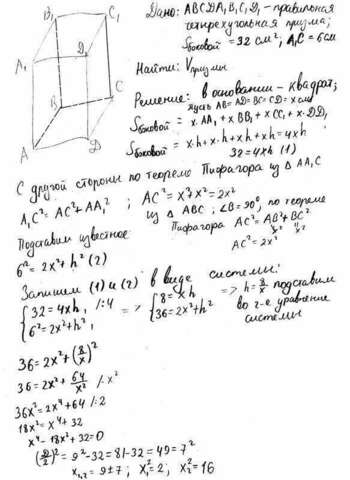 B₁
C₁
A₁
D₁
B
C
A
D
Дано: ABCDA₁B₁C₁D₁ - правильная
четырехугольная призма;
Sбоковой = 32 см²; A₁C = 6 см
Найти: Vпризмы
Решение: в основании - квадрат;
пусть AB=AD=BC=CD=x см
Sбоковой = x·AA₁ + x·BB₁ + x·CC₁ + x·DD₁
Sбоковой = x·h + x·h + x·h + x·h = 4xh
32=4xh (1)
С другой стороны по теореме Пифагора из △AA₁C
A₁C² = AC² + AA₁² ; AC² = x²+x² = 2x²
из △ABC; ∠B=90°, по теореме
Пифагора AC² = AB² + BC²
x² x²
AC² = 2x²
Подставим известное
6² = 2x² + h² (2)
Запишем (1) и (2) в виде системы:
{32=4xh, /:4 => {8=xh => h=8/x подставим
{6²=2x²+h², {36=2x²+h² во 2-е уравнение
системы
36=2x²+(8/x)²
36=2x²+64/x² /·x²
36x²=2x⁴+64 /:2
18x²=x⁴+32
x⁴-18x²+32=0
(D/2)²=9²-32=81-32=49=7²
x₁,₂=9±7; x₁²=2; x₂²=16